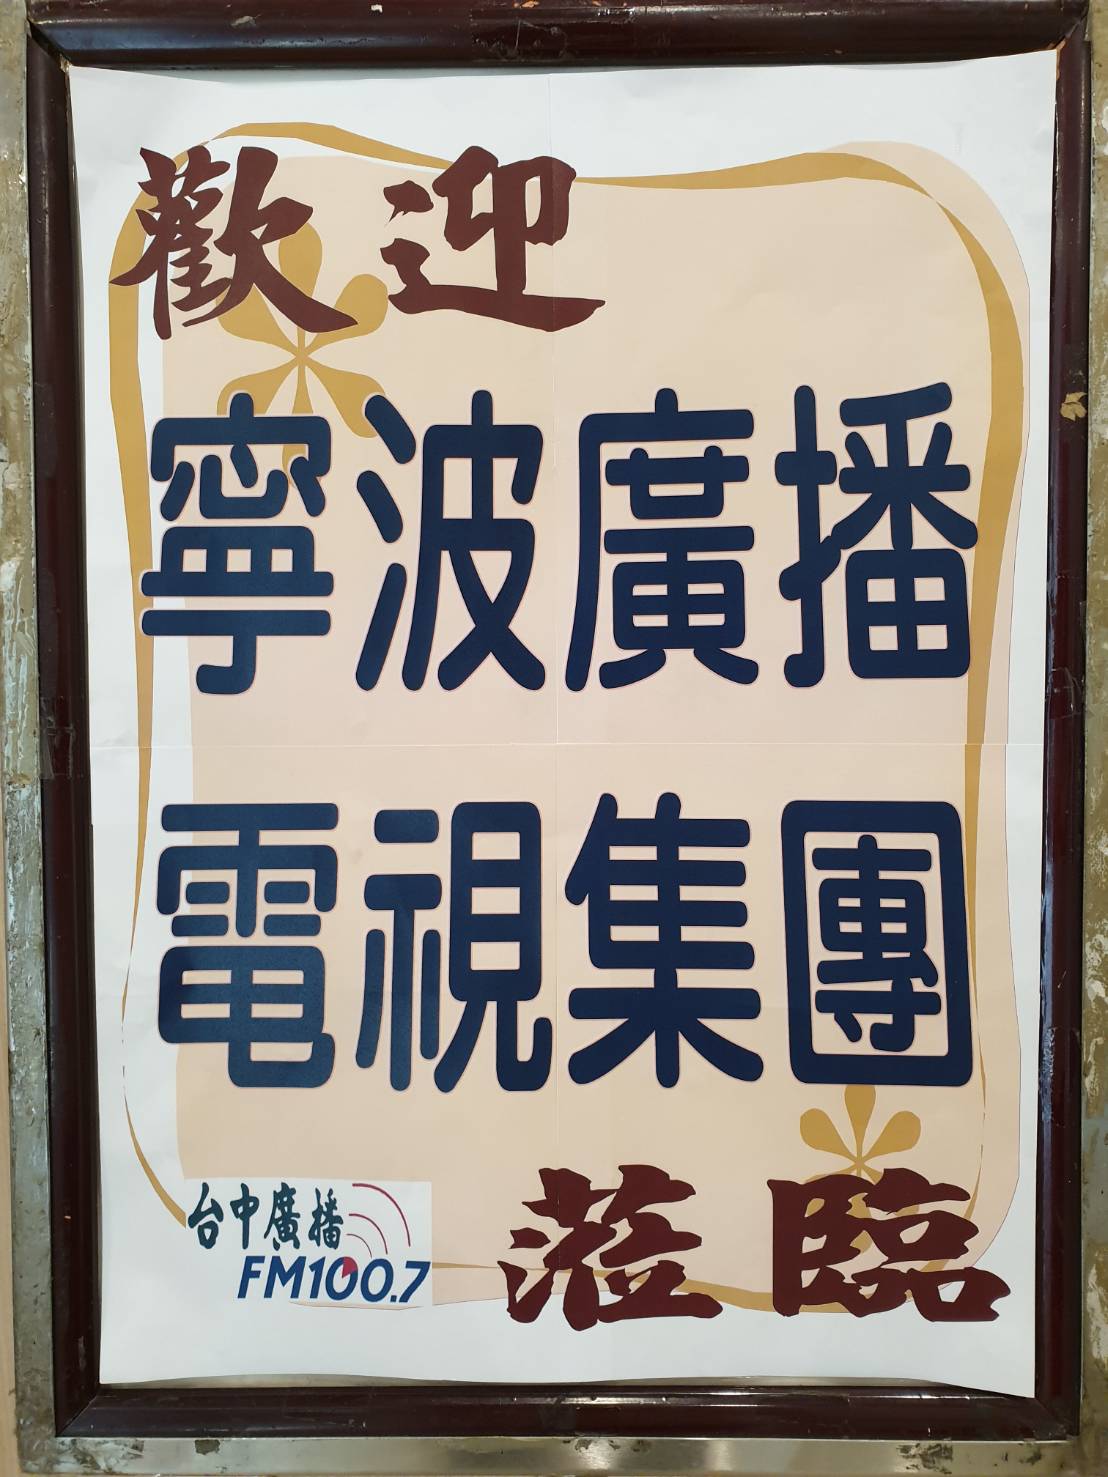 歡迎
寧波廣播
電視集團
蒞臨
台中廣播
FM100.7